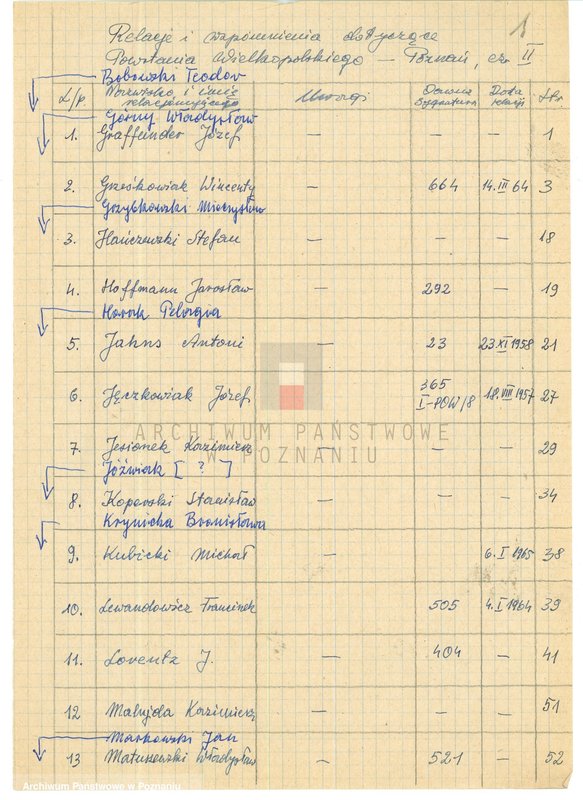 1
Relacje i wspomnienia dotyczące
Powstania Wielkopolskiego – Poznań, cz. II
Bobowski Teodor
L/p. Nazwisko i imię relacjonującego Uwagi Dawna Sygnatura Data relacji Str.
Górny Władysław
1. Graffunder Józef — — — 1
2. Grześkowiak Wincenty — 664 14.III 64 3
Grzybkowski Mieczysław
3. Hańczewski Stefan — — — 18
4. Hoffmann Jarosław — 292 — 19
Horak Pelagia
5. Jahns Antoni — 23 23 XI 1958 21
6. Jęczkowiak Józef — 365 I-POW/8 18.VIII 1957 27
ARCHIWUM PAŃSTWOWE
W POZNANIU
7. Jesionek Kazimierz — — — 29
Jóźwiak [ ? ]
8. Koperski Stanisław — — — 34
Krynicka Bronisława
9. Kubicki Michał — 6.I 1965 38
10. Lewandowicz Franciszek — 505 4.I 1964 39
11. Lorentz J. — 404 — 41
12 Matujda Kazimierz — — — 51
Markowski Jan
13 Matuszewski Władysław — 521 — 52
Archiwum Państwowe w Poznaniu